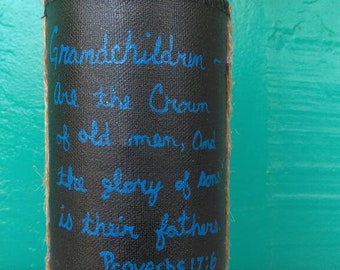 Grandchildren ~
are the Crown
of old men, And
the glory of sons
is their fathers
Proverbs 17:6